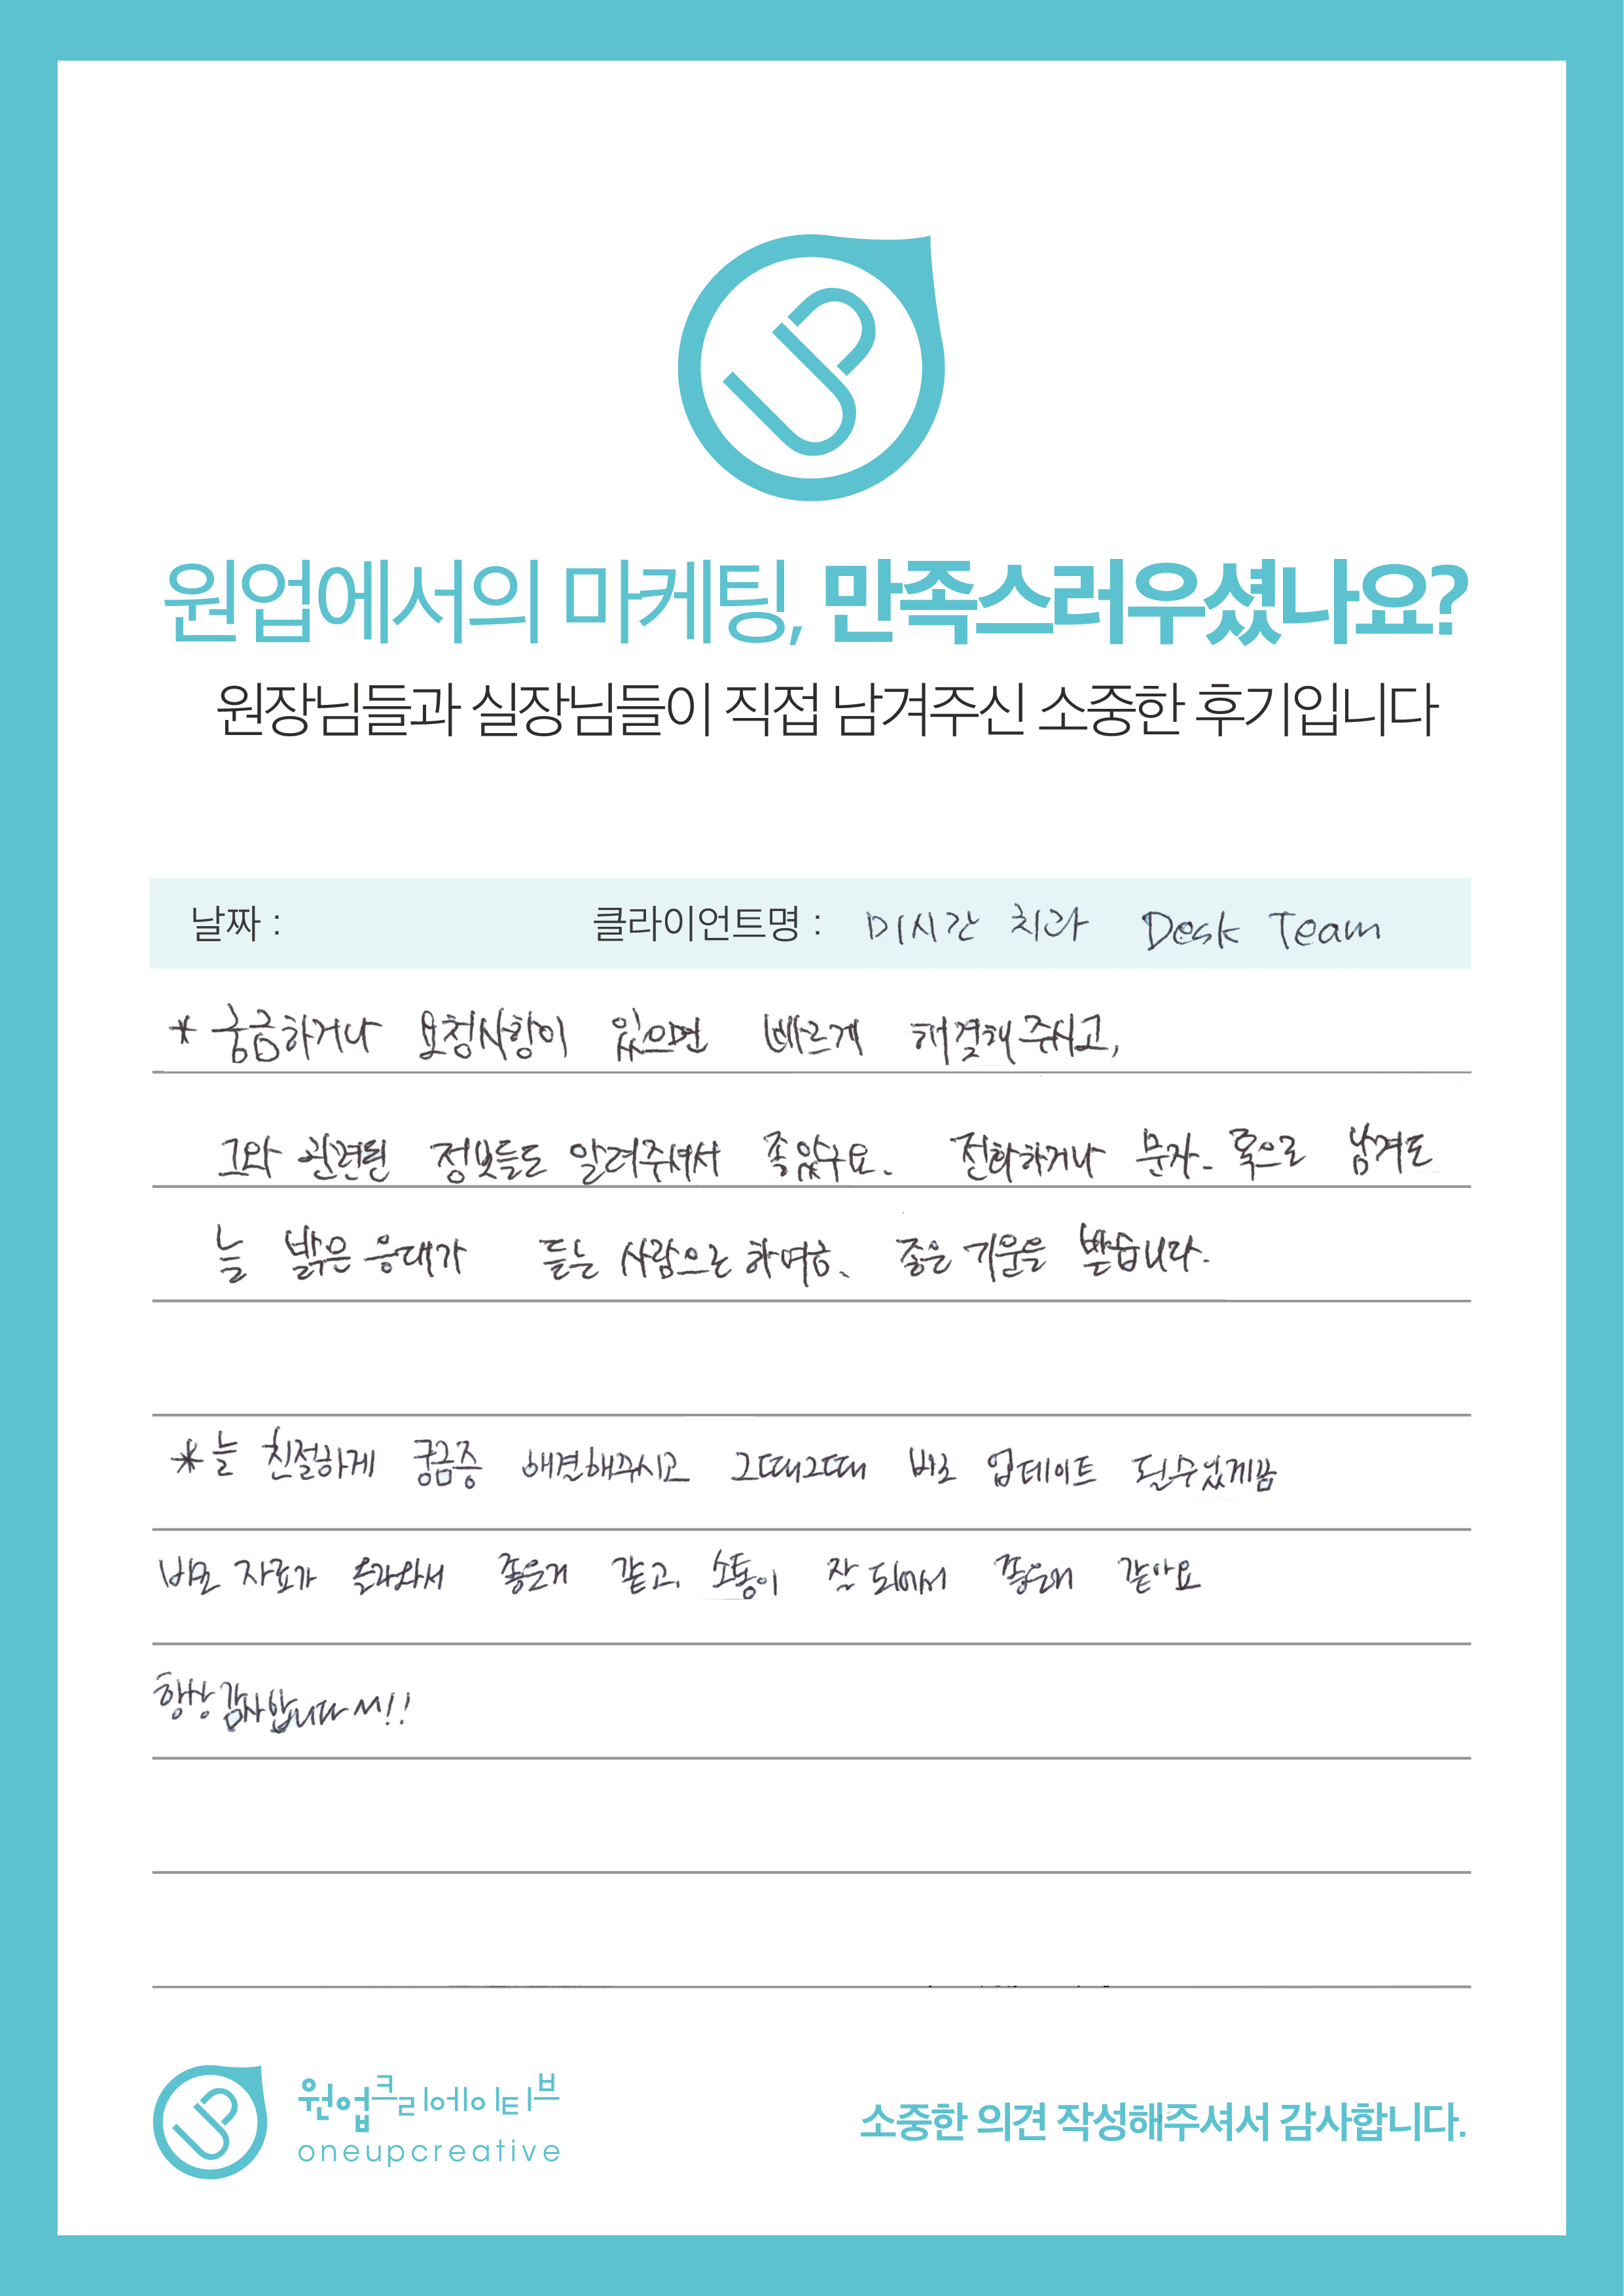 UP
원업에서의 마케팅, 만족스러우셨나요?
원장님들과 실장님들이 직접 남겨주신 소중한 후기입니다
날짜 : 클라이언트명 : 미시간 치과 Desk Team
* 궁금하거나 요청사항이 있으면 빠르게 해결해주시고,
그와 관련된 정보들도 알려주셔서 좋았구요. 전화하거나 문자. 톡으로 남겨도
늘 밝은 응대가 듣는 사람으로 하여금, 좋은 기운을 받습니다.
*늘 친절하게 궁금증 해결해주시고 그때그때 바로 업데이트 될수있게끔
바로 자료가 올라와서 좋은거 같고, 소통이 잘 되어서 좋은거 같아요
항상 감사합니다 ^^!!
UP
원업크리에이티브
oneupcreative
소중한 의견 작성해주셔서 감사합니다.